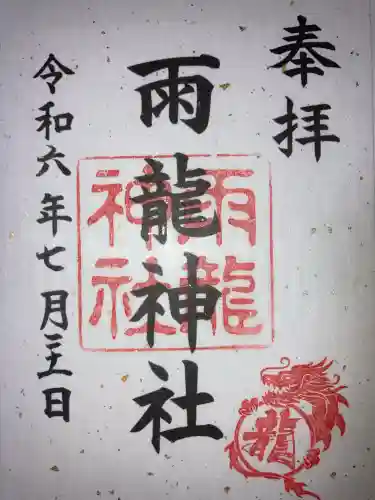 奉拝
雨龍神社
雨龍
神社
令和六年七月三十一日
龍